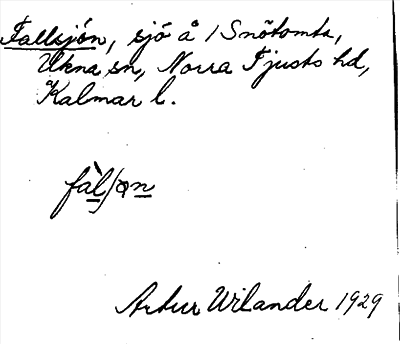 Fallsjön, sjö å /Snötomta,
Ukna sn, Norra Tjusts hd,
Kalmar l.
fàlʃɷn
Artur Wilander 1929